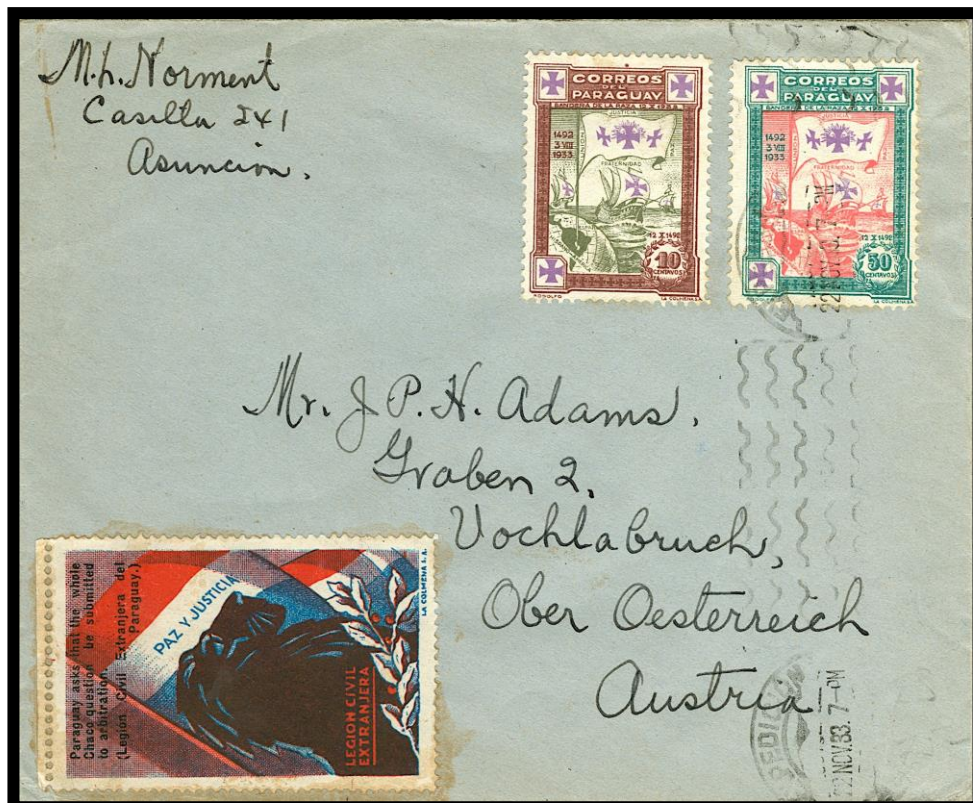 M.L. Norment
Casilla 241
Asuncion.
CORREOS
DEL
PARAGUAY
BANDERA DE LA RAZA
1492
3 VIII
1933
JUSTICIA
UNION
PAZ
FRATERNIDAD
12 X 1492
10
CENTAVOS
RODOLFO
LA COLMENA S.A.
CORREOS
DEL
PARAGUAY
BANDERA DE LA RAZA
1492
3 VIII
1933
JUSTICIA
FRATERNIDAD
12 X 1492
50
CENTAVOS
LA COLMENA S.A.
22 NOV
Mr. J. P. H. Adams,
Graben 2,
Vochlabruch,
Ober Oesterreich
Austria
22 NOV. 33. 7-PM
Paraguay asks that the whole
Chaco question be submitted
to arbitration.
(Legion Civil Extranjera del
Paraguay.)
PAZ Y JUSTICIA
LEGION CIVIL
EXTRANJERA
LA COLMENA S. A.